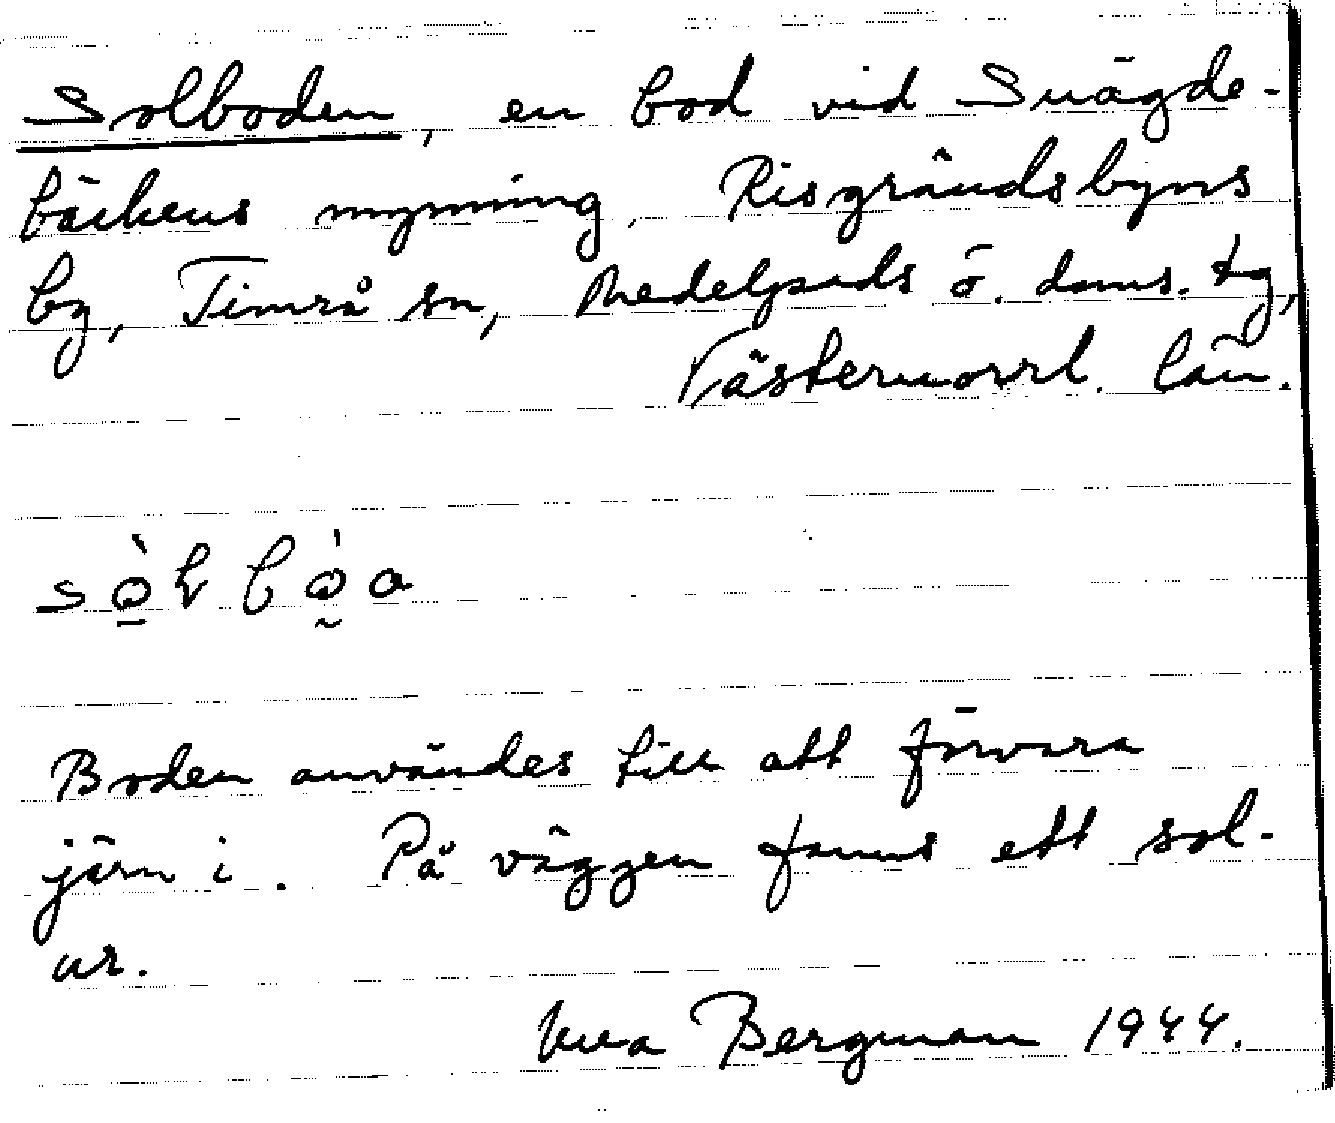 Solboden, en bod vid Snägde-
bäckens mynning, Risgrändsbyns
by, Timrå sn, Medelpads ö. doms. tg,
Västernorrl. län.
Boden användes till att förvara
järn i. På väggen fanns ett sol-
ur.
Bergman 1944.